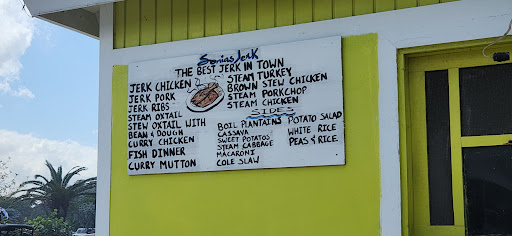 Sonias Jerk
THE BEST JERK IN TOWN
JERK CHICKEN
JERK PORK
JERK RIBS
STEAM OXTAIL
STEW OXTAIL WITH
BEAN & DOUGH
CURRY CHICKEN
FISH DINNER
CURRY MUTTON
STEAM TURKEY
BROWN STEW CHICKEN
STEAM PORKCHOP
STEAM CHICKEN
SIDES
BOIL PLANTAINS
CASSAVA
SWEET POTATOS
STEAM CABBAGE
MACARONI
COLE SLAW
POTATO SALAD
WHITE RICE
PEAS & RICE